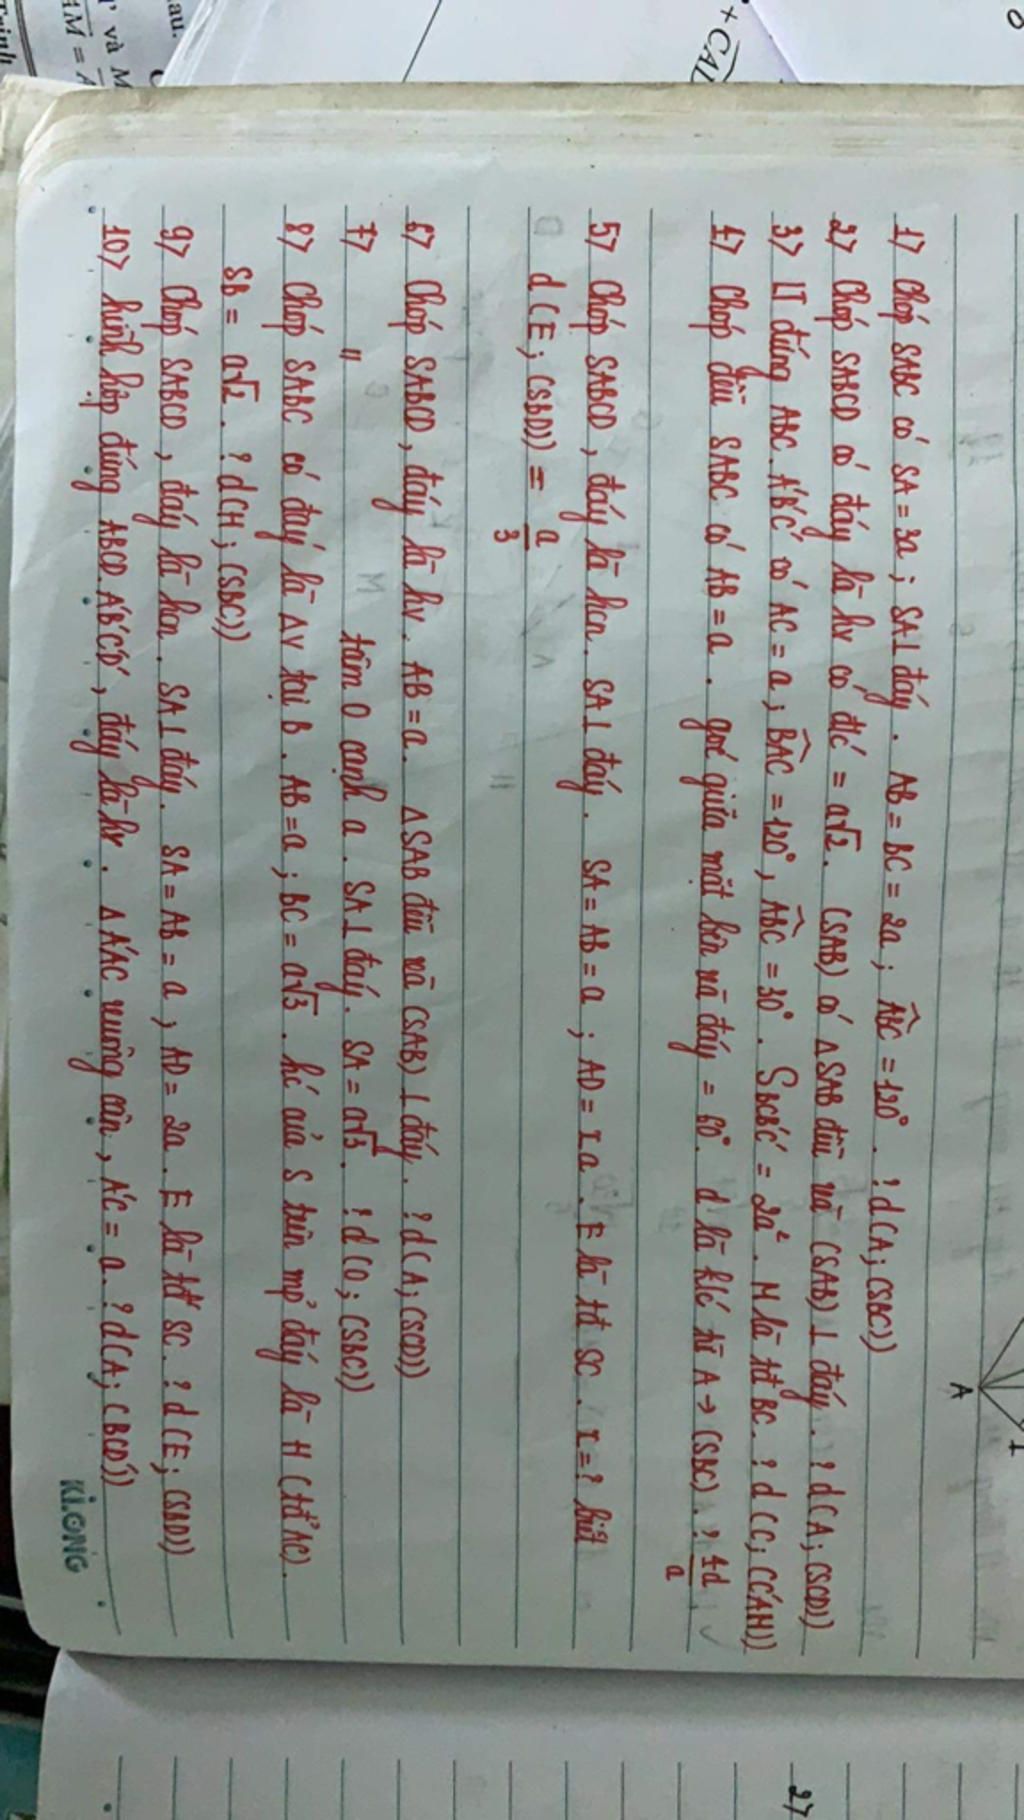 1> Chóp SABC có SA = 3a ; SA ⊥ đáy . AB = BC = 2a ; ABC = 120° . ? d(A; (SBC))
2> Chóp SABCD có đáy là hv có đ/c = a√2 . (SAB) có ΔSAB đều và (SAB) ⊥ đáy . ? d(A; (SCD))
3> LT đứng ABC.A'B'C' có AC = a ; BAC = 120° , ABC = 30° . SBCB'C' = 2a² . M là tđ BC . ? d(C; (C'AM))
4> Chóp đều SABC có AB = a . góc giữa mặt bên và đáy = 60° . d là k/c từ A → (SBC) . ? 4d/a
5> Chóp SABCD , đáy là hcn . SA ⊥ đáy . SA = AB = a ; AD = x.a . E là tđ SC . x = ? biết
d(E; (SBD)) = a/3
6> Chóp SABCD , đáy là hv . AB = a . ΔSAB đều và (SAB) ⊥ đáy . ? d(A; (SCD))
7> " tâm O cạnh a . SA ⊥ đáy . SA = a√3 . ? d(O; (SBC))
8> Chóp SABC có đáy là Δv tại B . AB = a ; BC = a√3 . h/c của S trên mp đáy là H (tđ AC) .
SB = a√2 . ? d(H; (SBC))
9> Chóp SABCD , đáy là hcn . SA ⊥ đáy . SA = AB = a , AD = 2a . E là tđ SC . ? d(E; (SBD))
10> hình hộp đứng ABCD.A'B'C'D' , đáy là hv . ΔA'AC vuông cân , A'C = a . ? d(A; (BCD'))
KLONG
A
I
2>
+ CAD
au.
r và M
AM = A